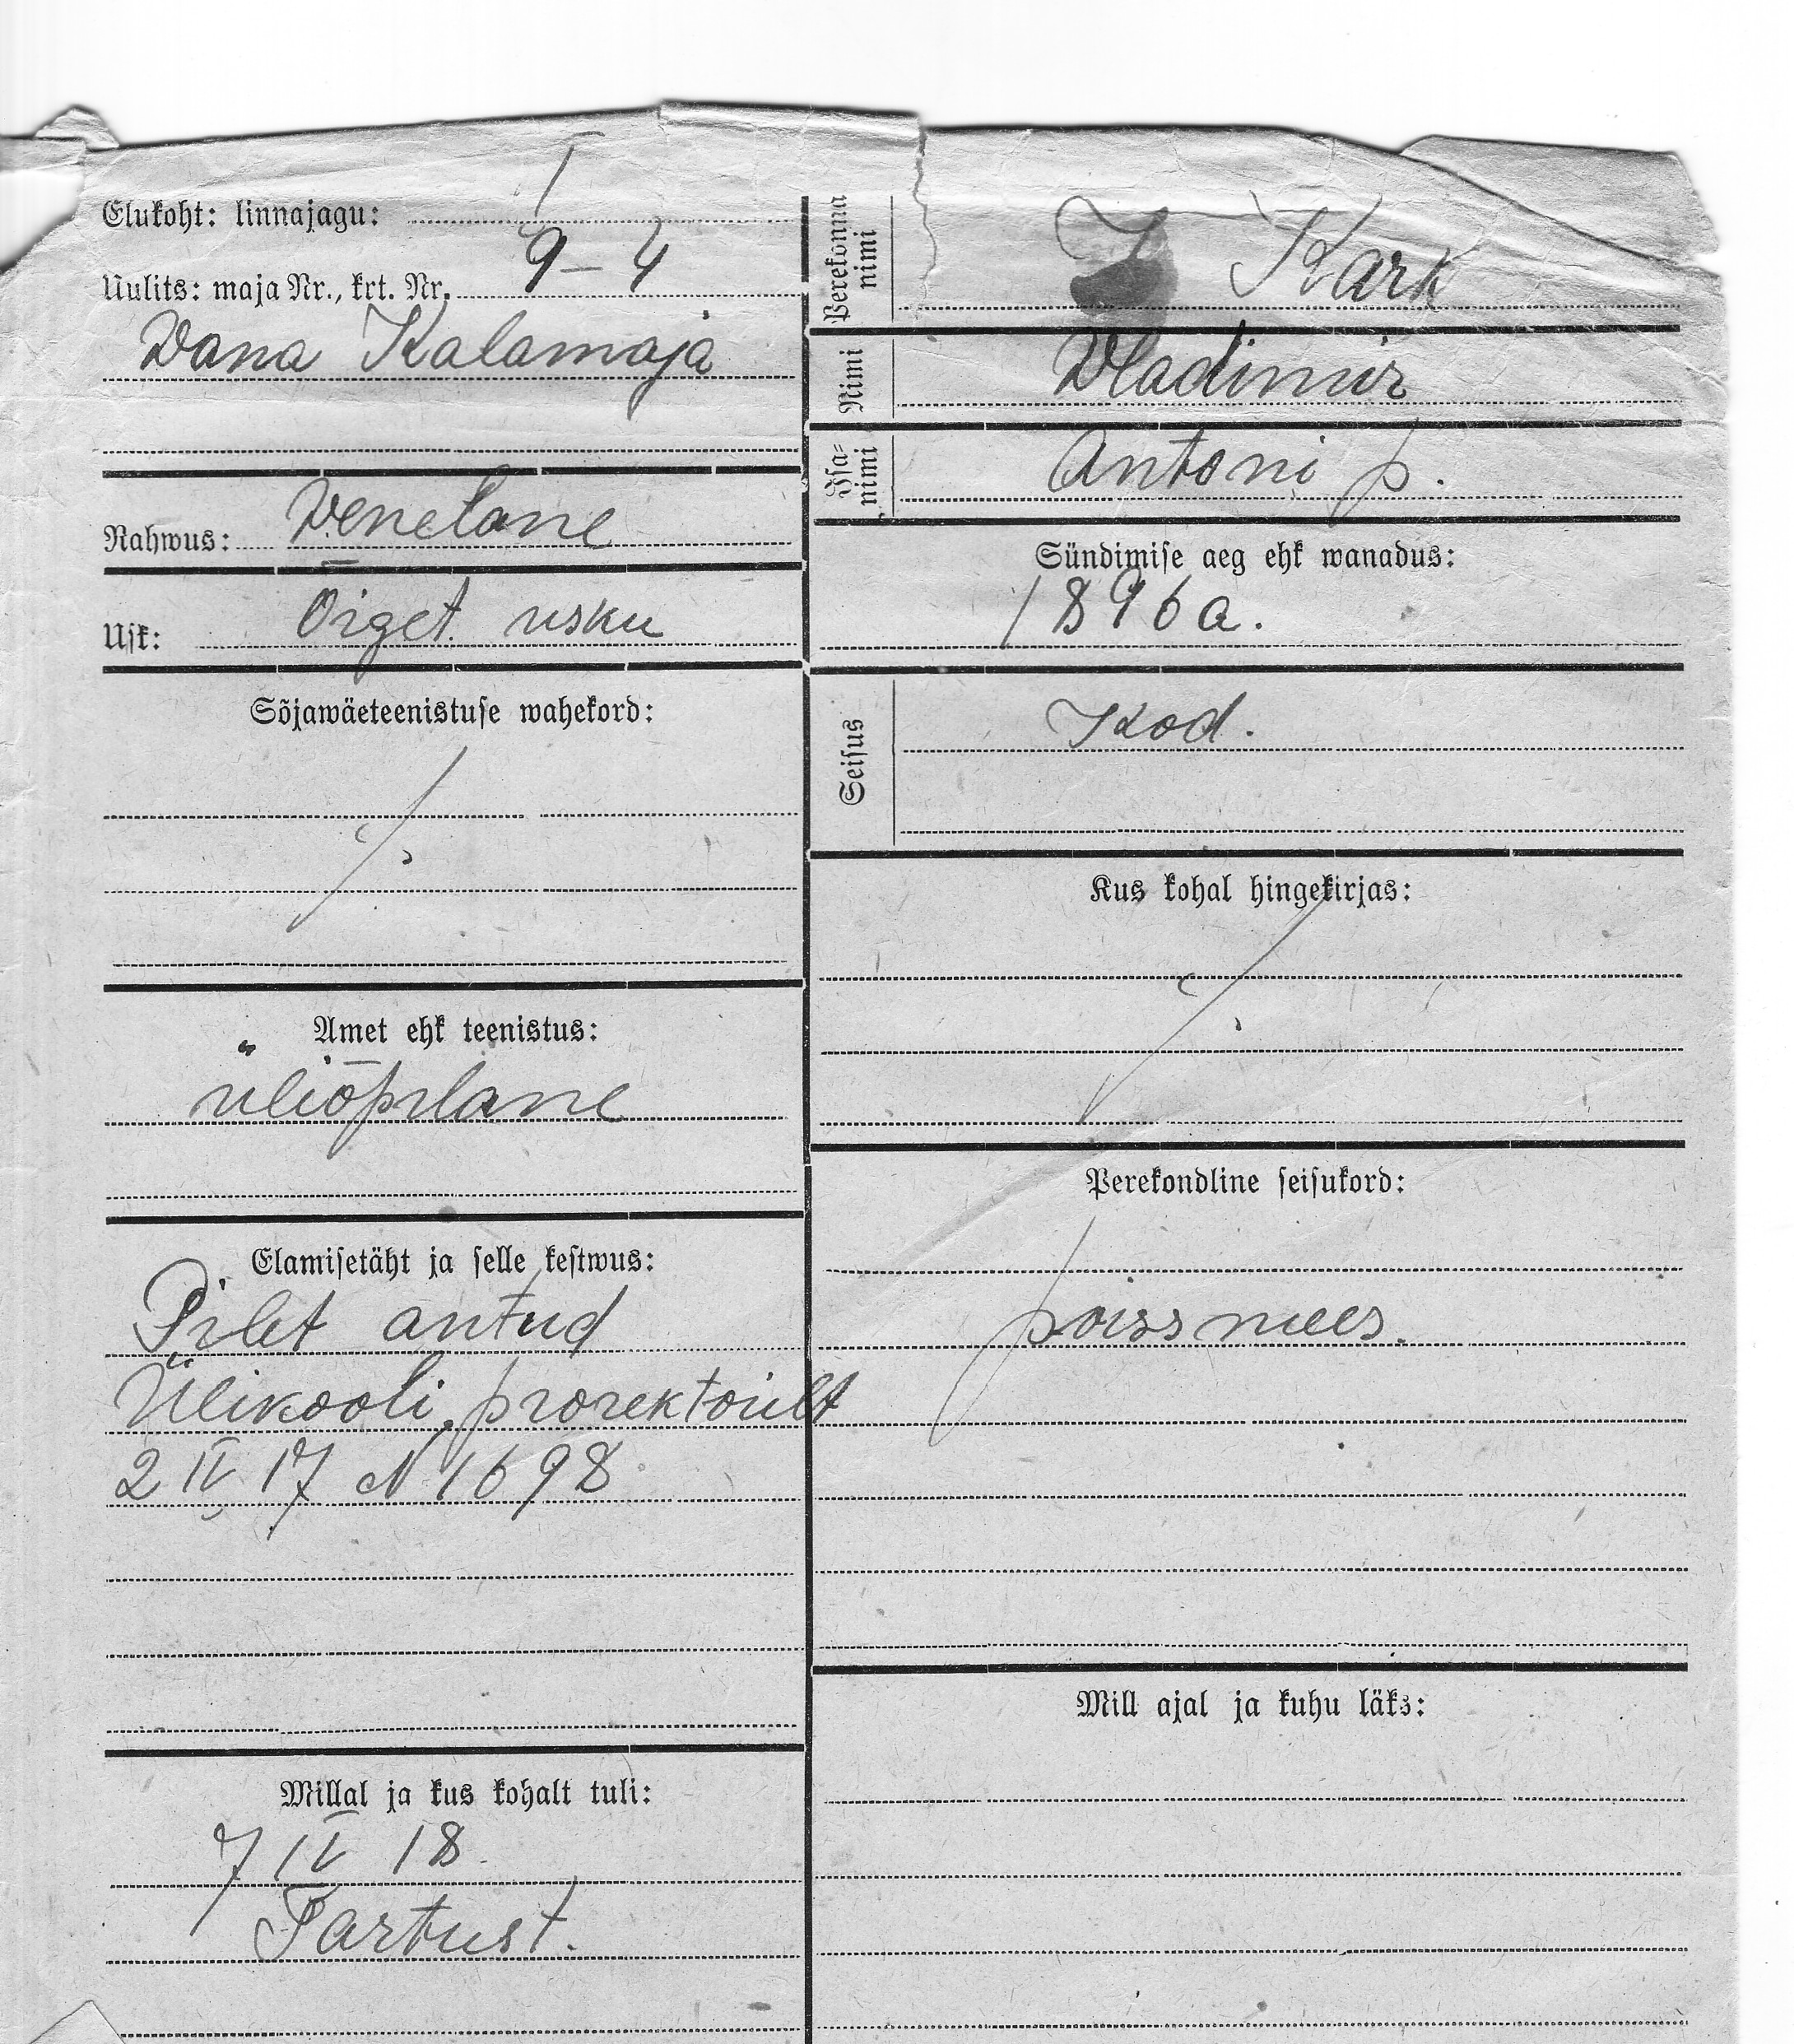 Elukoht: linnajagu: I
Uulits: maja Nr., krt. Nr. 9–4
Wana Kalamaja
Rahwus: Venelane
Usk: Õiget. usku
Sõjawäeteenistuse wahekord:
Amet ehk teenistus:
üliõpilane
Elamisetäht ja selle kestwus:
Pilet antud
Ülikooli prorektorilt
2 IV 17 N 1698
Millal ja kus kohalt tuli:
7 IV 18
Tartust.
Perekonna
nimi
Kark
Nimi Vladimir
Isa-
nimi
Antoni p.
Sündimise aeg ehk wanadus:
1896 a.
Seisus Kod.
Kus kohal hingekirjas:
Perekondline seisukord:
poissmees.
Mill ajal ja kuhu läks: